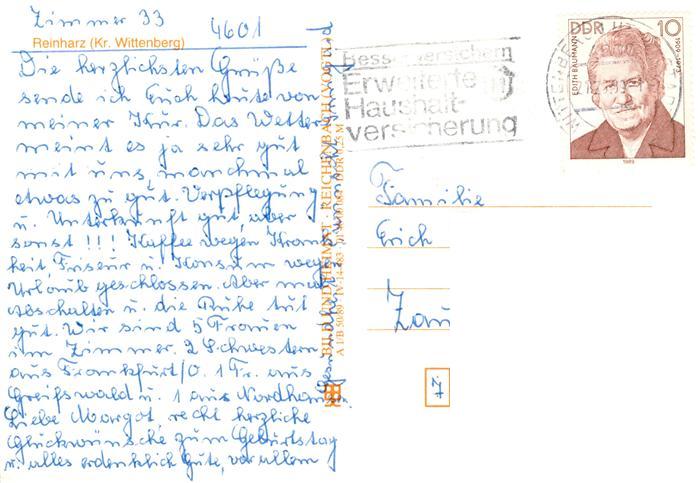 Zimmer 33
4601
Reinharz (Kr. Wittenberg)
Die herzlichsten Grüße
sende ich Euch heute von
meiner Kur. Das Wetter
meint es ja sehr gut
mit uns, manchmal
etwas zu gut. Verpflegung
u. Unterkunft gut, aber
sonst !!! Kaffee wegen Krank
heit, Friseur u. Konsum wegen
Urlaub geschlossen. Aber mal
Abschalten u. die Ruhe tut
gut. Wir sind 5 Frauen
im Zimmer. 2 Schwestern
aus Frankfurt/O. 1 Fr. aus
Greifswald u. 1 aus Nordhausen.
Liebe Margot, recht herzliche
Glückwünsche zum Geburtstag
u. alles erdenklich Gute, vor allem
Gesundheit
BILD UND HEIMAT · REICHENBACH (VOGTLAND)
DDR 0,25 M
Besser versichern
Erweiterte
Haushalt-
versicherung
DDR 10
EDITH BAUMANN 1909-1973
1989
Familie
Erich
Zau
7